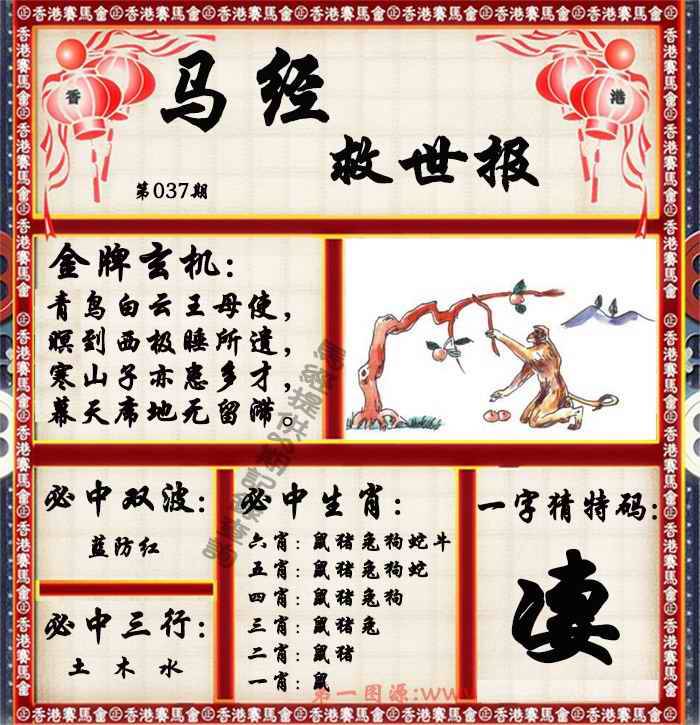 香港賽馬會
香 港
马经
救世报
第037期
金牌玄机：
青鸟白云王母使，
暝到西极睡所遣，
寒山子亦患多才，
幕天席地无留滞。
必中双波：
蓝防红
必中三行：
土 木 水
必中生肖：
六肖：鼠猪兔狗蛇牛
五肖：鼠猪兔狗蛇
四肖：鼠猪兔狗
三肖：鼠猪兔
二肖：鼠猪
一肖：鼠
一字猜特码：
凄
第一图源:www